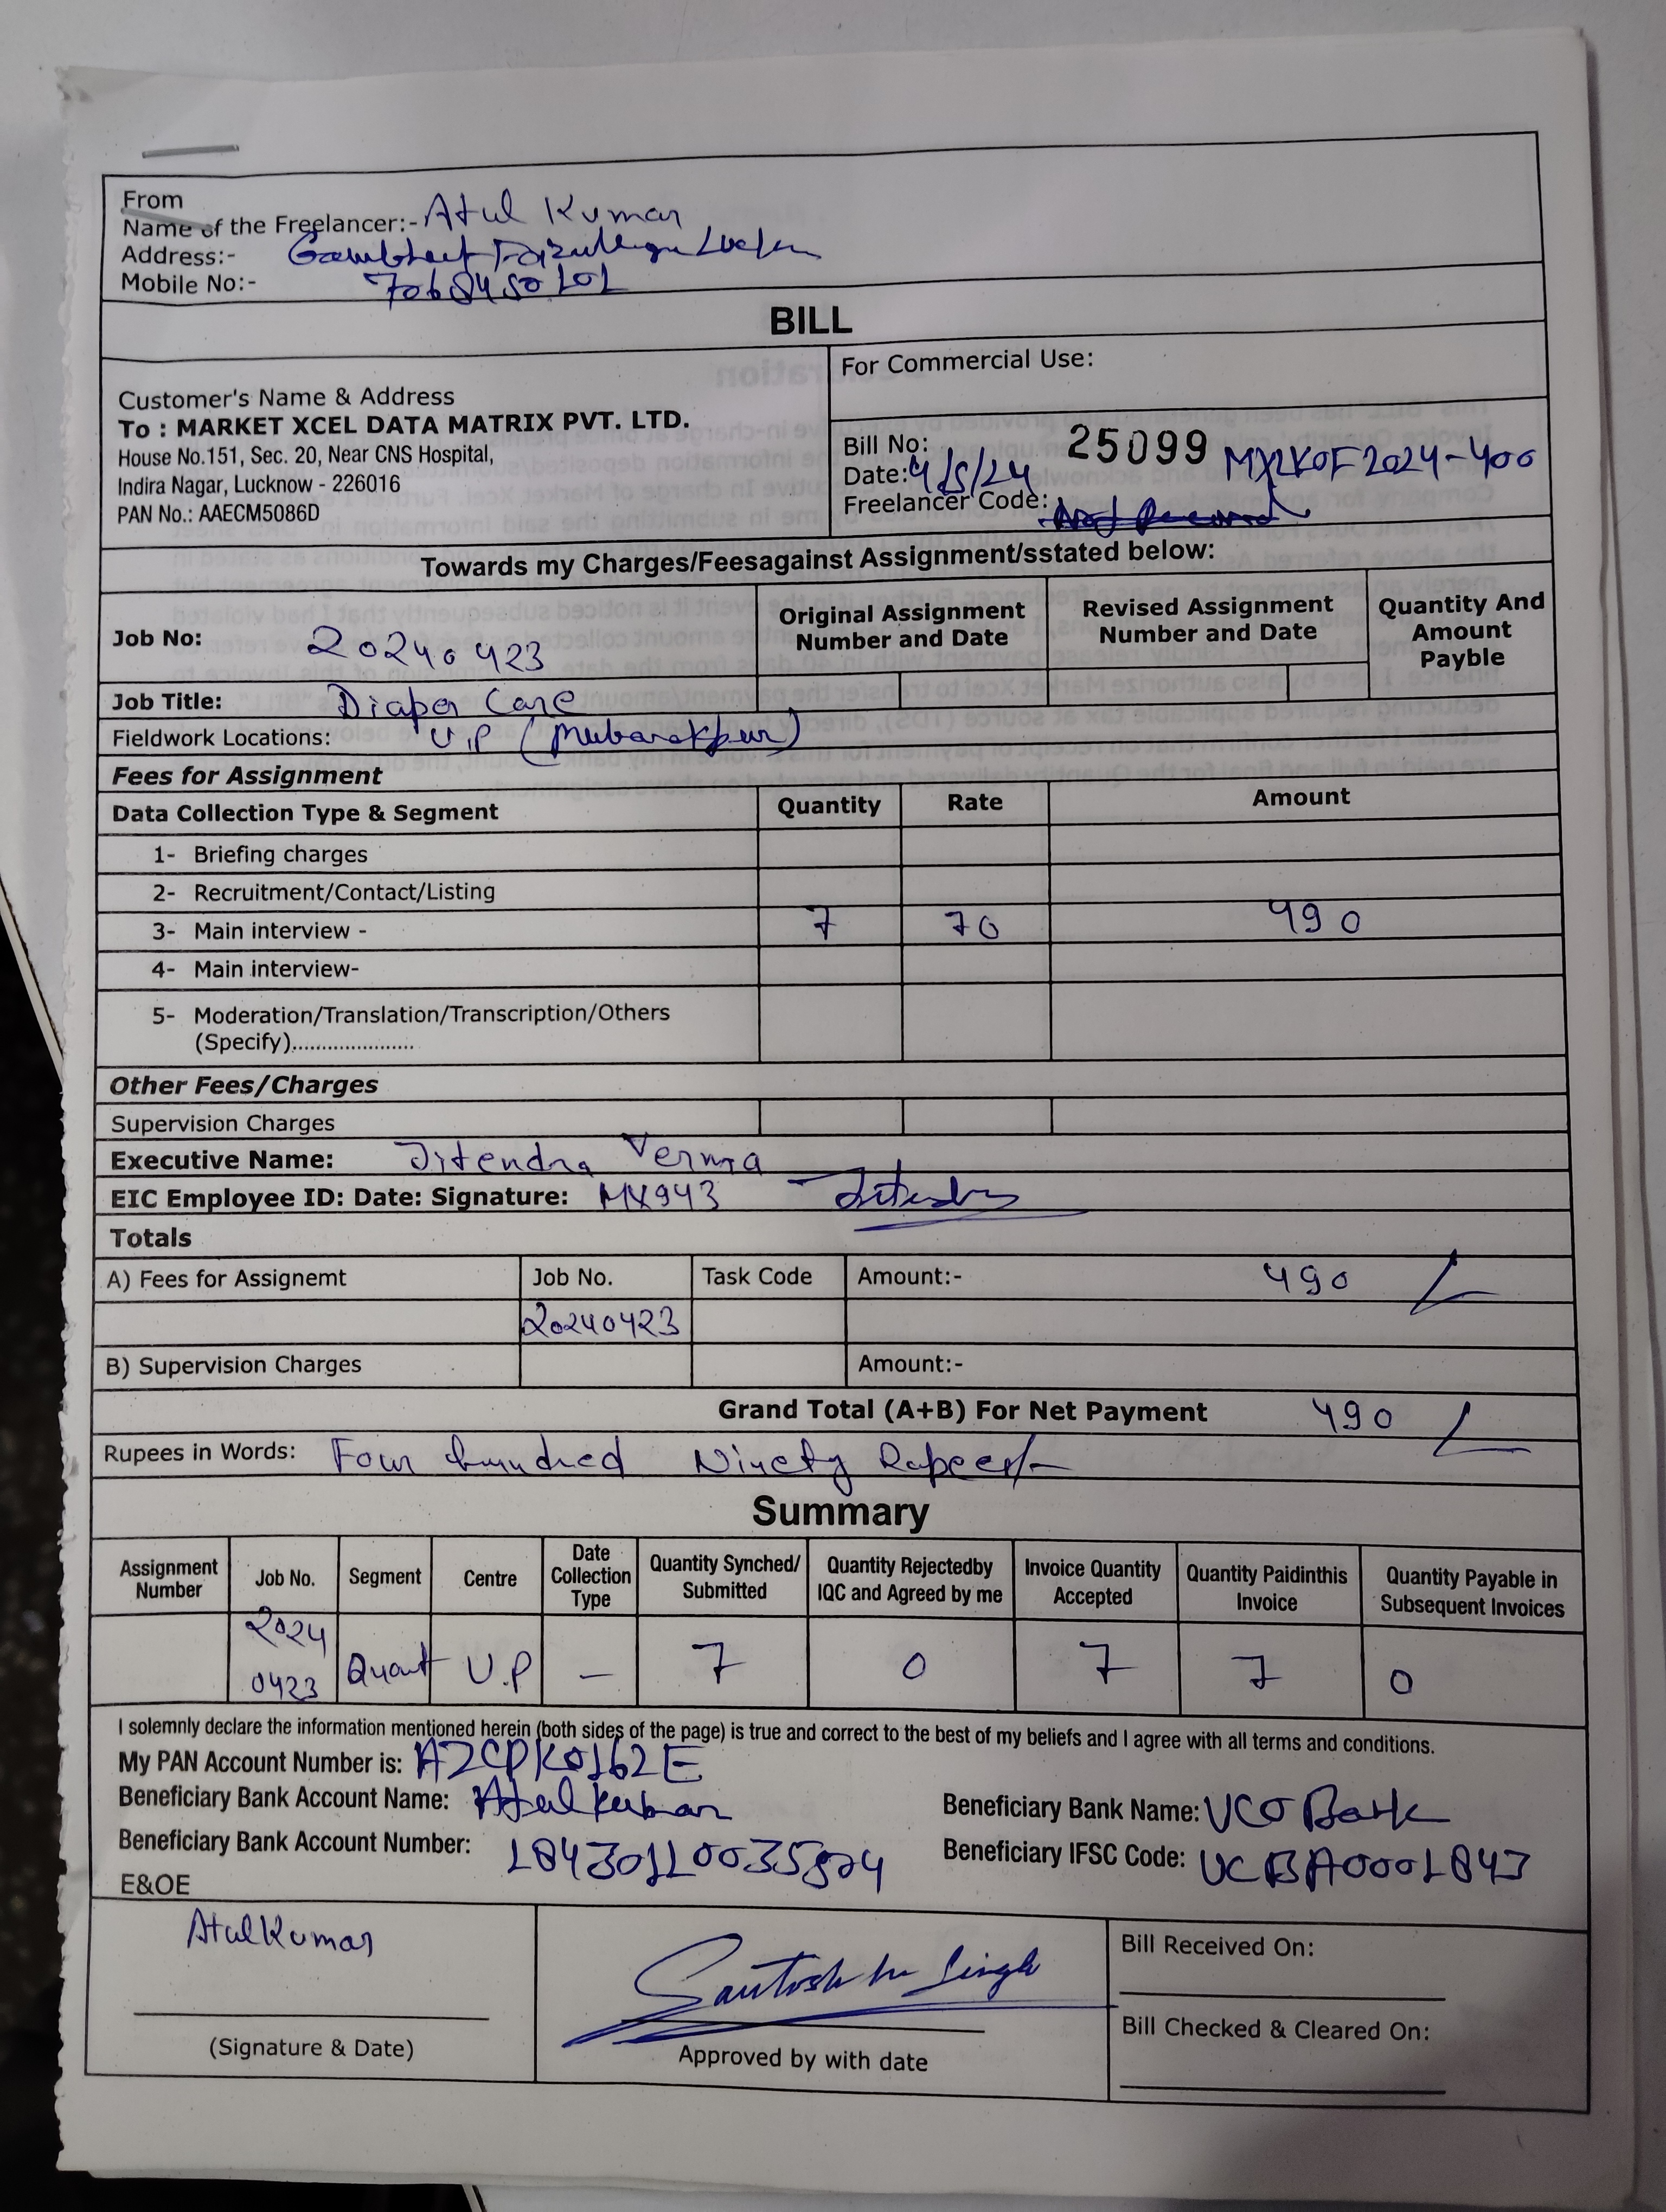 From
Name of the Freelancer:- Atul Kumar
Address:-
Mobile No:- 7068450101
BILL
Customer's Name & Address
To : MARKET XCEL DATA MATRIX PVT. LTD.
House No.151, Sec. 20, Near CNS Hospital,
Indira Nagar, Lucknow - 226016
PAN No.: AAECM5086D
For Commercial Use:
Bill No: 25099
Date: 4/5/24 MXLKOF2024-400
Freelancer Code:
Towards my Charges/Feesagainst Assignment/sstated below:
Job No: 20240423
Original Assignment Number and Date
Revised Assignment Number and Date
Quantity And Amount Payble
Job Title: Diaper Care
Fieldwork Locations: U.P (Mubarakpur)
Fees for Assignment
Data Collection Type & Segment Quantity Rate Amount
1- Briefing charges
2- Recruitment/Contact/Listing
3- Main interview - 7 70 490
4- Main interview-
5- Moderation/Translation/Transcription/Others
(Specify).....................
Other Fees/Charges
Supervision Charges
Executive Name: Jitendra Verma
EIC Employee ID: Date: Signature: MX943 Jitendra
Totals
A) Fees for Assignemt Job No. Task Code Amount:- 490
20240423
B) Supervision Charges Amount:-
Grand Total (A+B) For Net Payment 490
Rupees in Words: Four hundred Ninety Rupees/-
Summary
Assignment Number Job No. Segment Centre Date Collection Type Quantity Synched/ Submitted Quantity Rejectedby IQC and Agreed by me Invoice Quantity Accepted Quantity Paidinthis Invoice Quantity Payable in Subsequent Invoices
2024 0423 Quant U.P - 7 0 7 7 0
I solemnly declare the information mentioned herein (both sides of the page) is true and correct to the best of my beliefs and I agree with all terms and conditions.
My PAN Account Number is: AZCPK0162E
Beneficiary Bank Account Name: Atul Kumar
Beneficiary Bank Name: UCO Bank
Beneficiary Bank Account Number: 18430110035804
Beneficiary IFSC Code: UCBA0001843
E&OE
Atul Kumar
(Signature & Date)
Santosh Kr Singh
Approved by with date
Bill Received On:
Bill Checked & Cleared On: